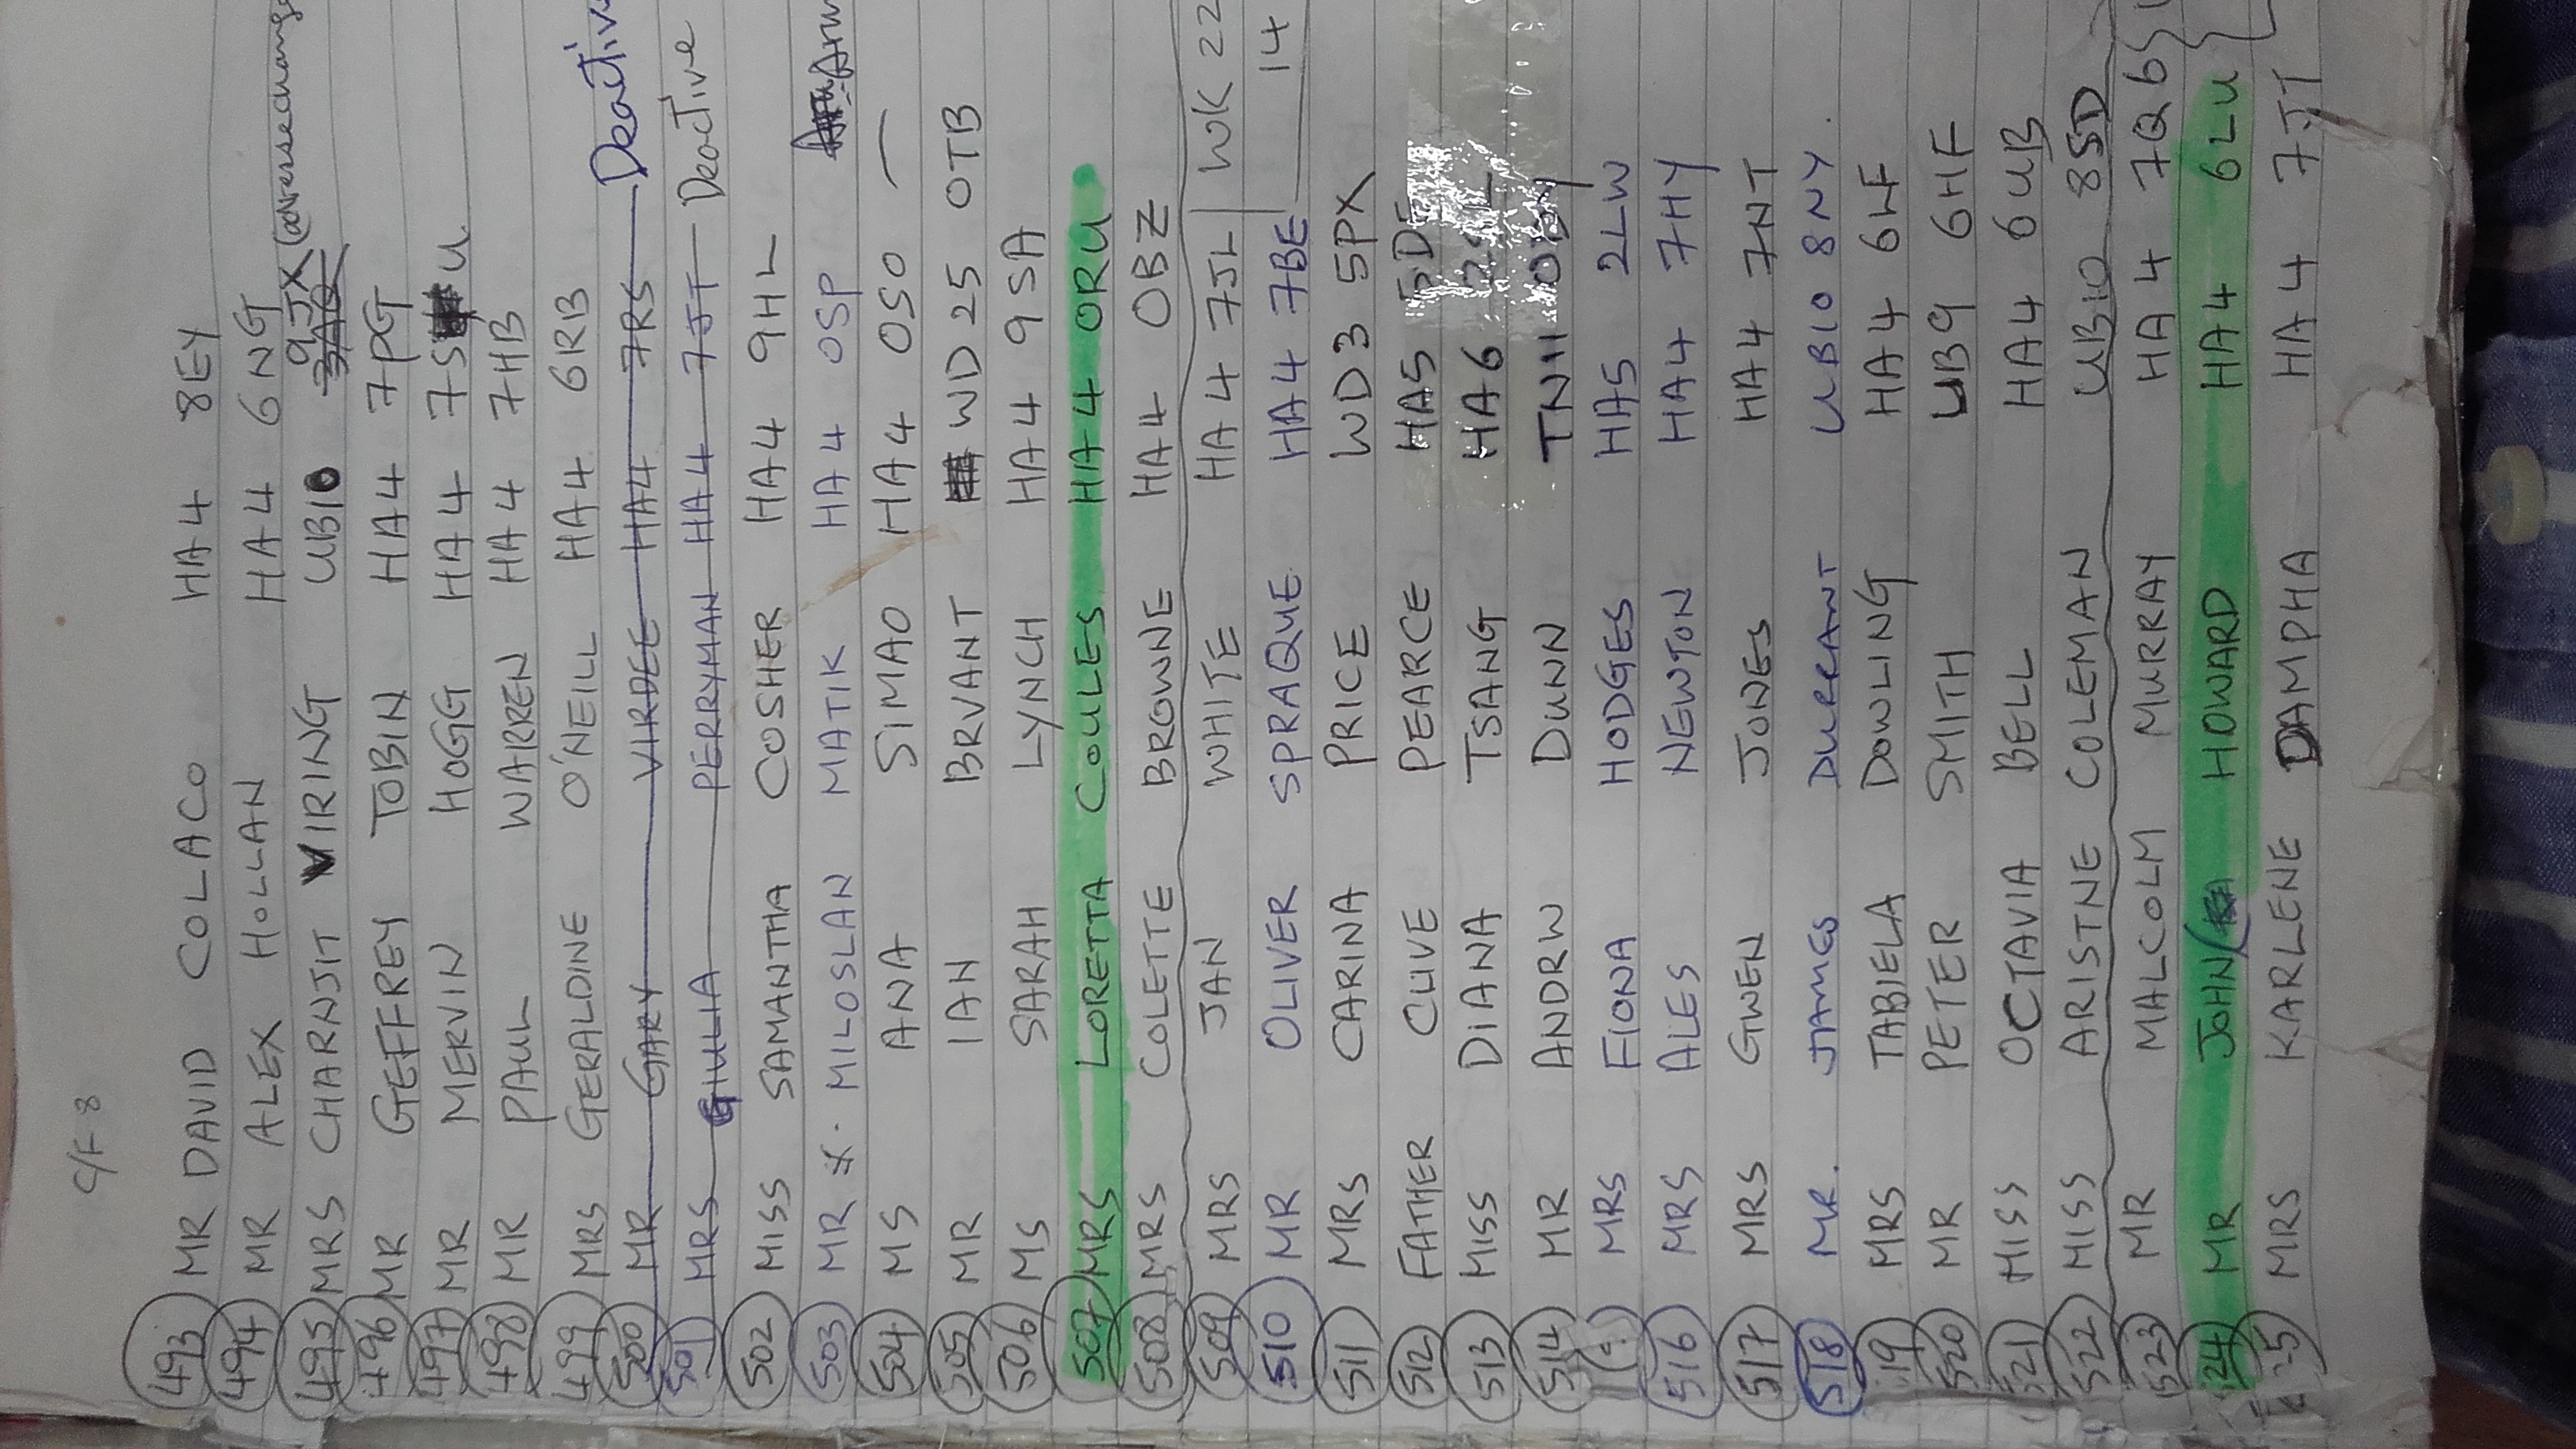 C/F 8
493 MR DAVID COLACO HA4 8EY
494 MR ALEX HOLLAN HA4 6NG
495 MRS CHARNJIT VIRING UB10 3AQ 9JX (adresse change
496 MR GEFFREY TOBIN HA4 7PG
497 MR MERVIN HOGG HA4 7S U
498 MR PAUL WARREN HA4 7HB
499 MRS GERALDINE O'NEILL HA4 6RB
500 MR GARY VIRDEE HA4 7RS Deactiv
501 MRS GIULIA PERRYMAN HA4 7JT Deactive
502 MISS SAMANTHA COSHER HA4 9HL
503 MR MILOSLAN MATIK HA4 OSP
504 MS ANA SIMAO HA4 OSO —
505 MR IAN BRVANT WD25 OTB
506 MS SARAH LYNCH HA4 9SA
507 MRS LORETTA COULES HA4 ORU
508 MRS COLETTE BROWNE HA4 OBZ
509 MRS JAN WHITE HA4 7JL WK 22
510 MR OLIVER SPRAQUE HA4 7BE 14
511 MRS CARINA PRICE WD3 5PX
512 FATHER CLIVE PEARCE HA5
513 MISS DIANA TSANG HA6
514 MR ANDRW DUNN TN11
MRS FIONA HODGES HA5 2LW
516 MRS ALES NEWTON HA4 7HY
517 MRS GWEN JONES HA4 7NT
518 MR. JAMES DURRANT UB10 8NY.
19 MRS TABIELA DOWLING HA4 6LF
520 MR PETER SMITH UB9 6HF
521 MISS OCTAVIA BELL HA4 6UB
522 MISS ARISTNE COLEMAN UB10 8SD
523 MR MALCOLM MURRAY HA4 7Q6
24 MR JOHN HOWARD HA4 6LU
25 MRS KARLENE DAMPHA HA4 7JT